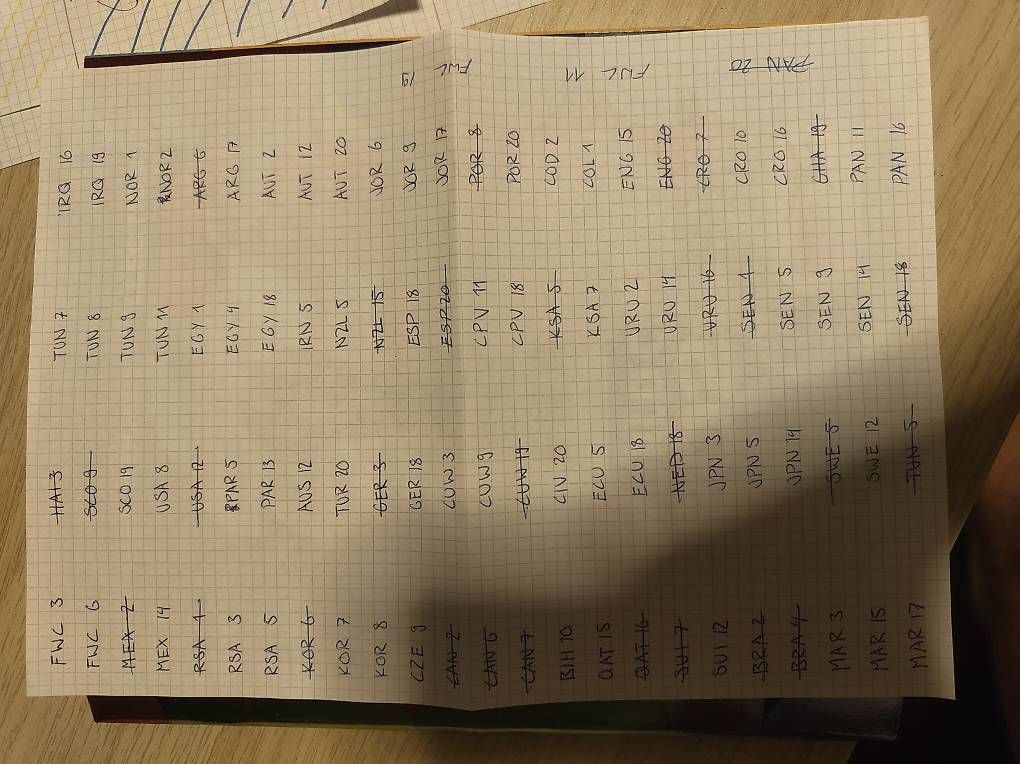 FWC 3
FWC 6
MEX 2
MEX 14
RSA 1
RSA 3
RSA 5
KOR 6
KOR 7
KOR 8
CZE 9
CAN 2
CAN 6
CAN 7
BIH 10
QAT 15
QAT 16
SUI 7
SUI 12
BRA 2
BRA 4
MAR 3
MAR 15
MAR 17
HAI 3
SCO 9
SCO 19
USA 8
USA 12
PAR 5
PAR 13
AUS 12
TUR 20
GER 3
GER 18
CUW 3
CUW 9
CUW 19
CIV 20
ECU 5
ECU 18
NED 18
JPN 3
JPN 5
JPN 14
SWE 5
SWE 12
TUN 5
TUN 7
TUN 8
TUN 9
TUN 11
EGY 1
EGY 4
EGY 18
IRN 5
NZL 5
NZL 15
ESP 18
ESP 20
CPV 11
CPV 18
KSA 5
KSA 7
URU 2
URU 14
URU 16
SEN 1
SEN 5
SEN 9
SEN 14
SEN 18
IRQ 16
IRQ 19
NOR 1
NOR 2
ARG 6
ARG 17
AUT 2
AUT 12
AUT 20
JOR 6
JOR 9
JOR 17
POR 8
POR 20
COD 2
COL 1
ENG 15
ENG 20
CRO 7
CRO 10
CRO 16
GHA 19
PAN 11
PAN 16
PAN 20
FWC 11
FWC 19